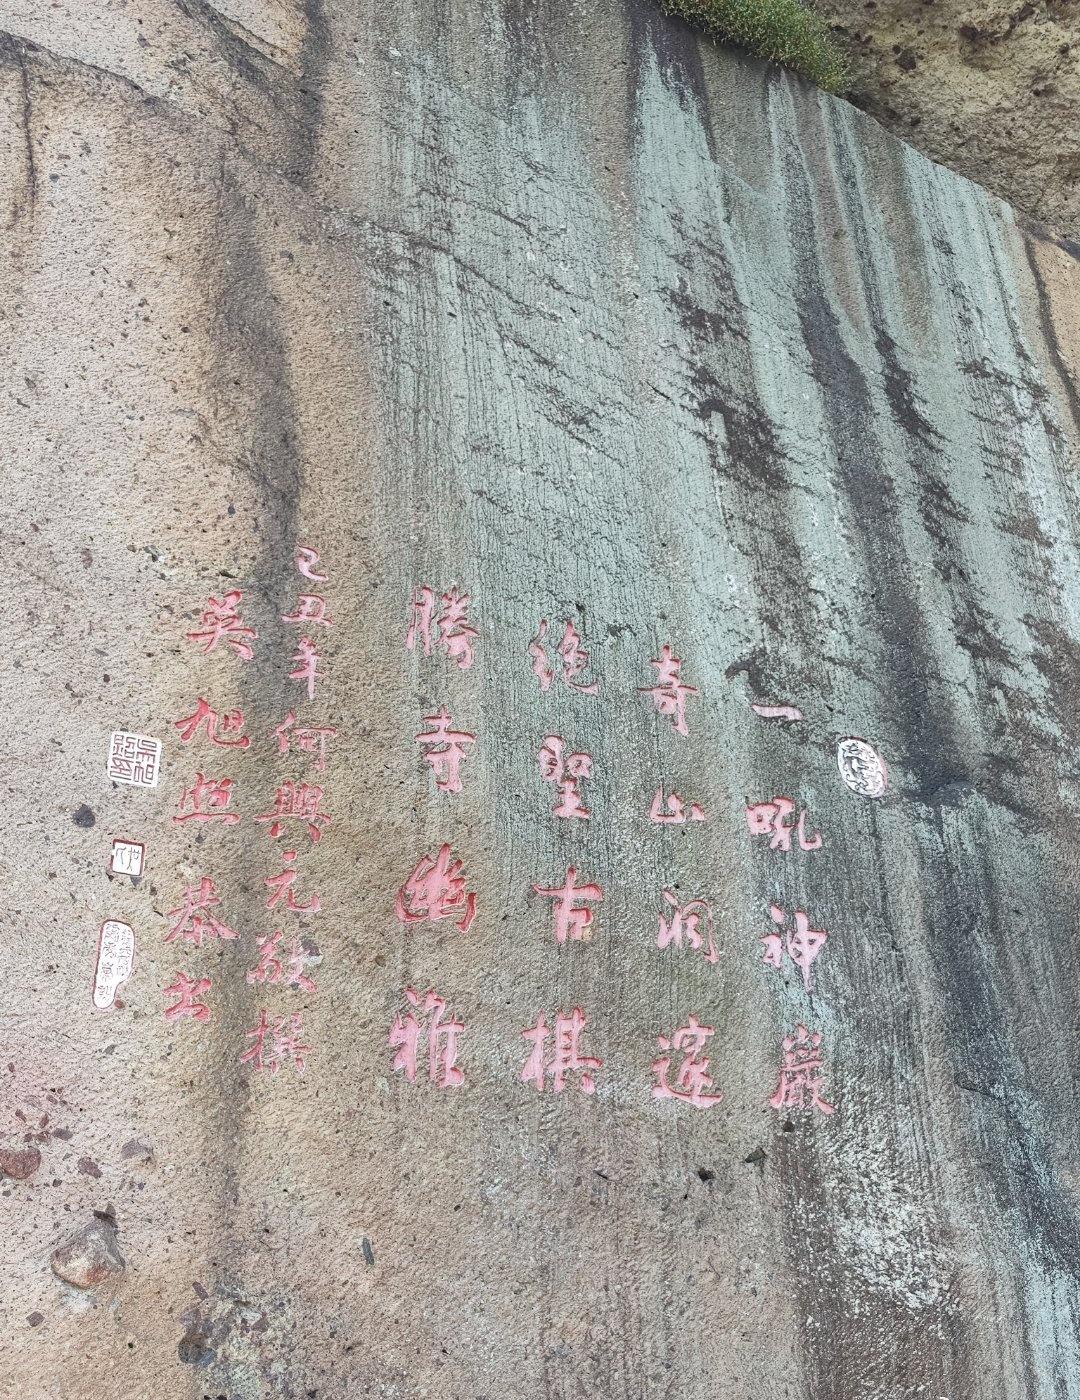 一吼神巖
奇山洞邃
絶壑古棋
勝寺幽雅
己丑年何興元敬撰
吳旭照恭书